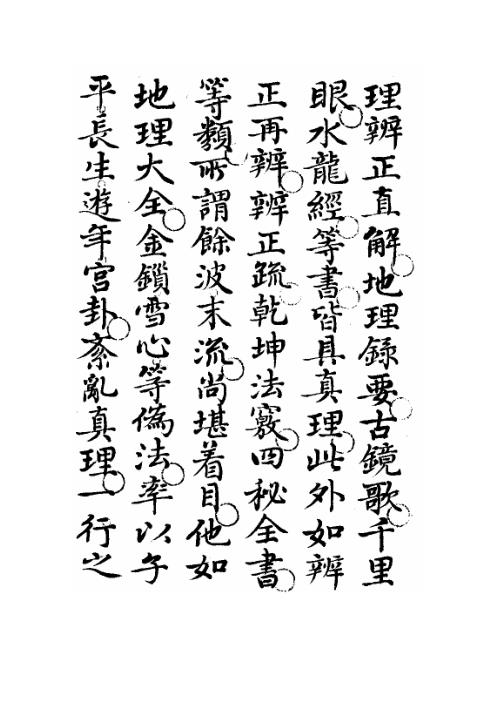 理辨正直解地理錄要古鏡歌千里
眼水龍經等書皆具真理此外如辨
正再辨辨正疏乾坤法竅四秘全書
等類所謂餘波末流尚堪着目他如
地理大全金鎖雪心等偽法率以子
平長生遊年宮卦紊亂真理一行之